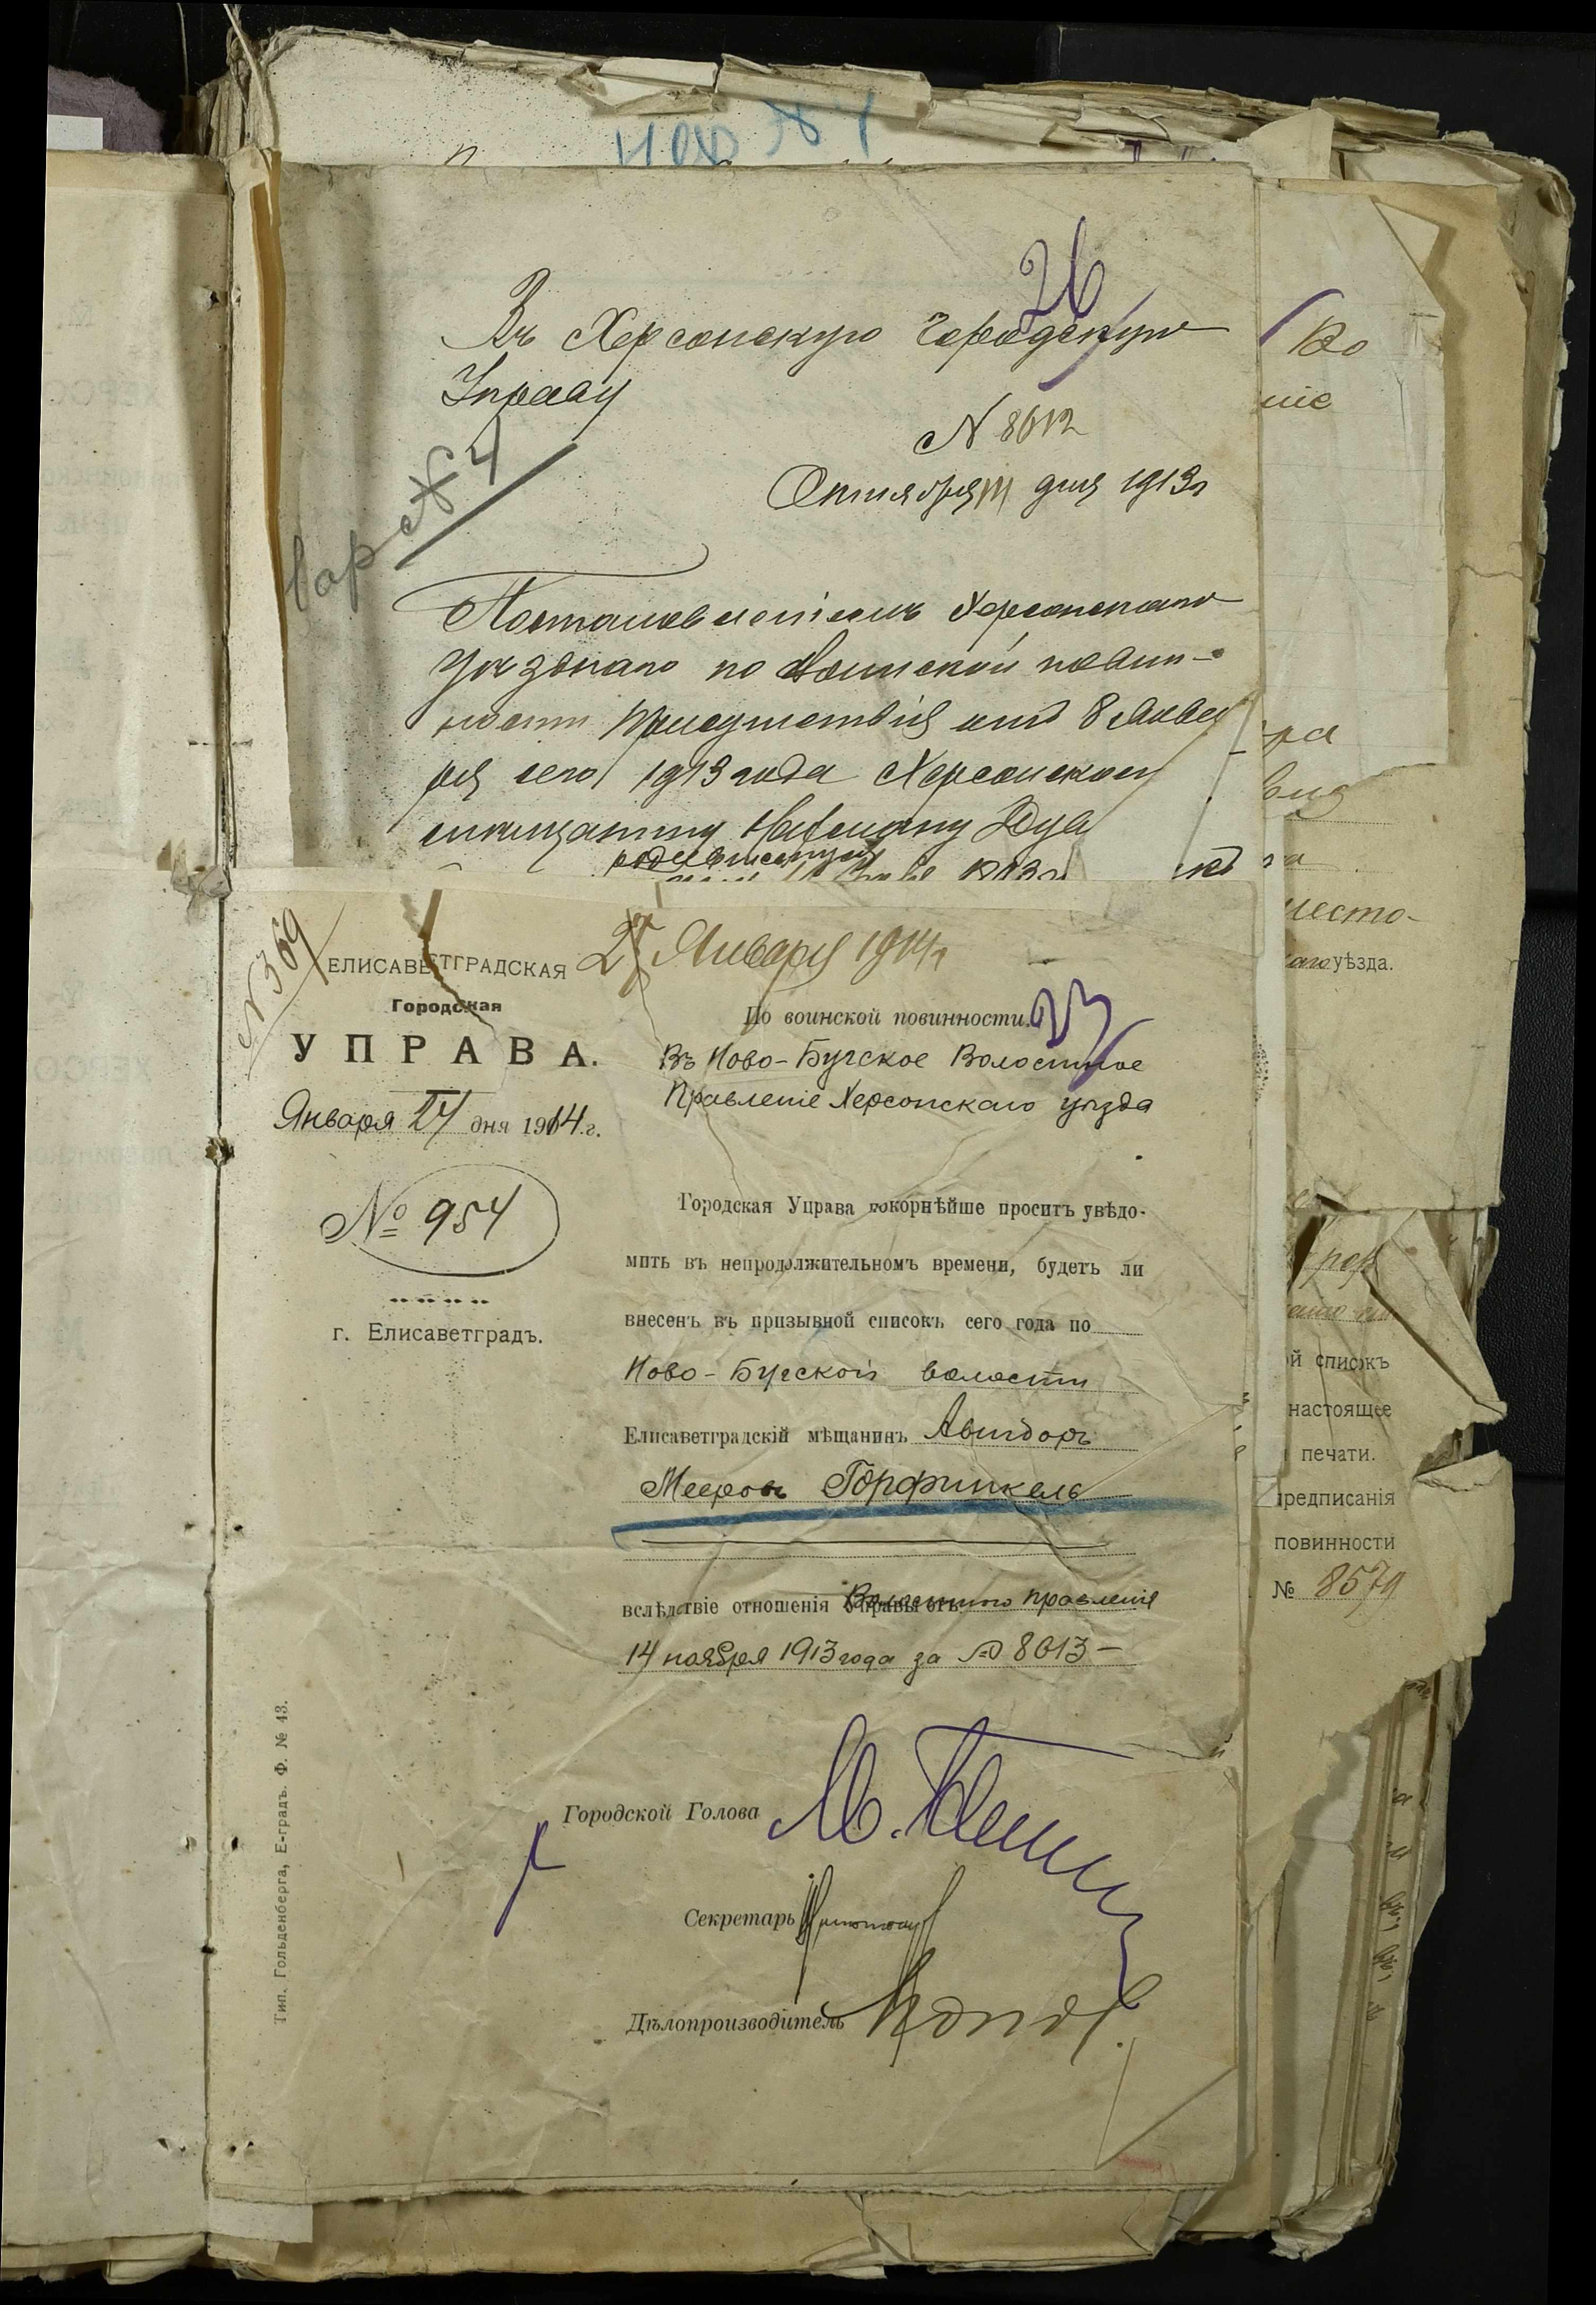 26
Въ Херсонскую Городскую
Управу
N 8612
Октября дня 1913 г
№ 4
Постановленіемъ Херсонскаго
Уѣзднаго по воинской повин-
ности Присутствія отъ 8 Янва
ря сего 1913 года Херсонскому
мѣщанину
родившемуся
N 369
25 Января 1914 г
ЕЛИСАВЕТГРАДСКАЯ
Городская
УПРАВА.
Января 24 дня 1914 г.
№ 954
г. Елисаветградъ.
По воинской повинности.
Въ Ново-Бугское Волостное
Правленіе Херсонскаго уѣзда
Городская Управа покорнѣйше проситъ увѣдо-
мить въ непродолжительномъ времени, будетъ ли
внесенъ въ призывной списокъ сего года по
Ново-Бугской волости
Елисаветградскій мѣщанинъ Авигдоръ
Мееровъ Горфинкель
вслѣдствіе отношенія Волостного Правленія
14 ноября 1913 года за № 8613 —
Городской Голова
Секретарь
Дѣлопроизводитель
Тип. Гольденберга, Е-градъ. Ф. № 43.
Во
ніе
ра
место-
уѣзда.
й списокъ
настоящее
печати.
предписанія
повинности
№ 8579